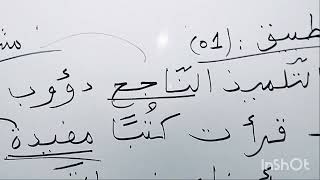 تطبيق : (01)
التّلميذ النّاجح دؤوب
- قرأت كتبًا مفيدة
InShOt